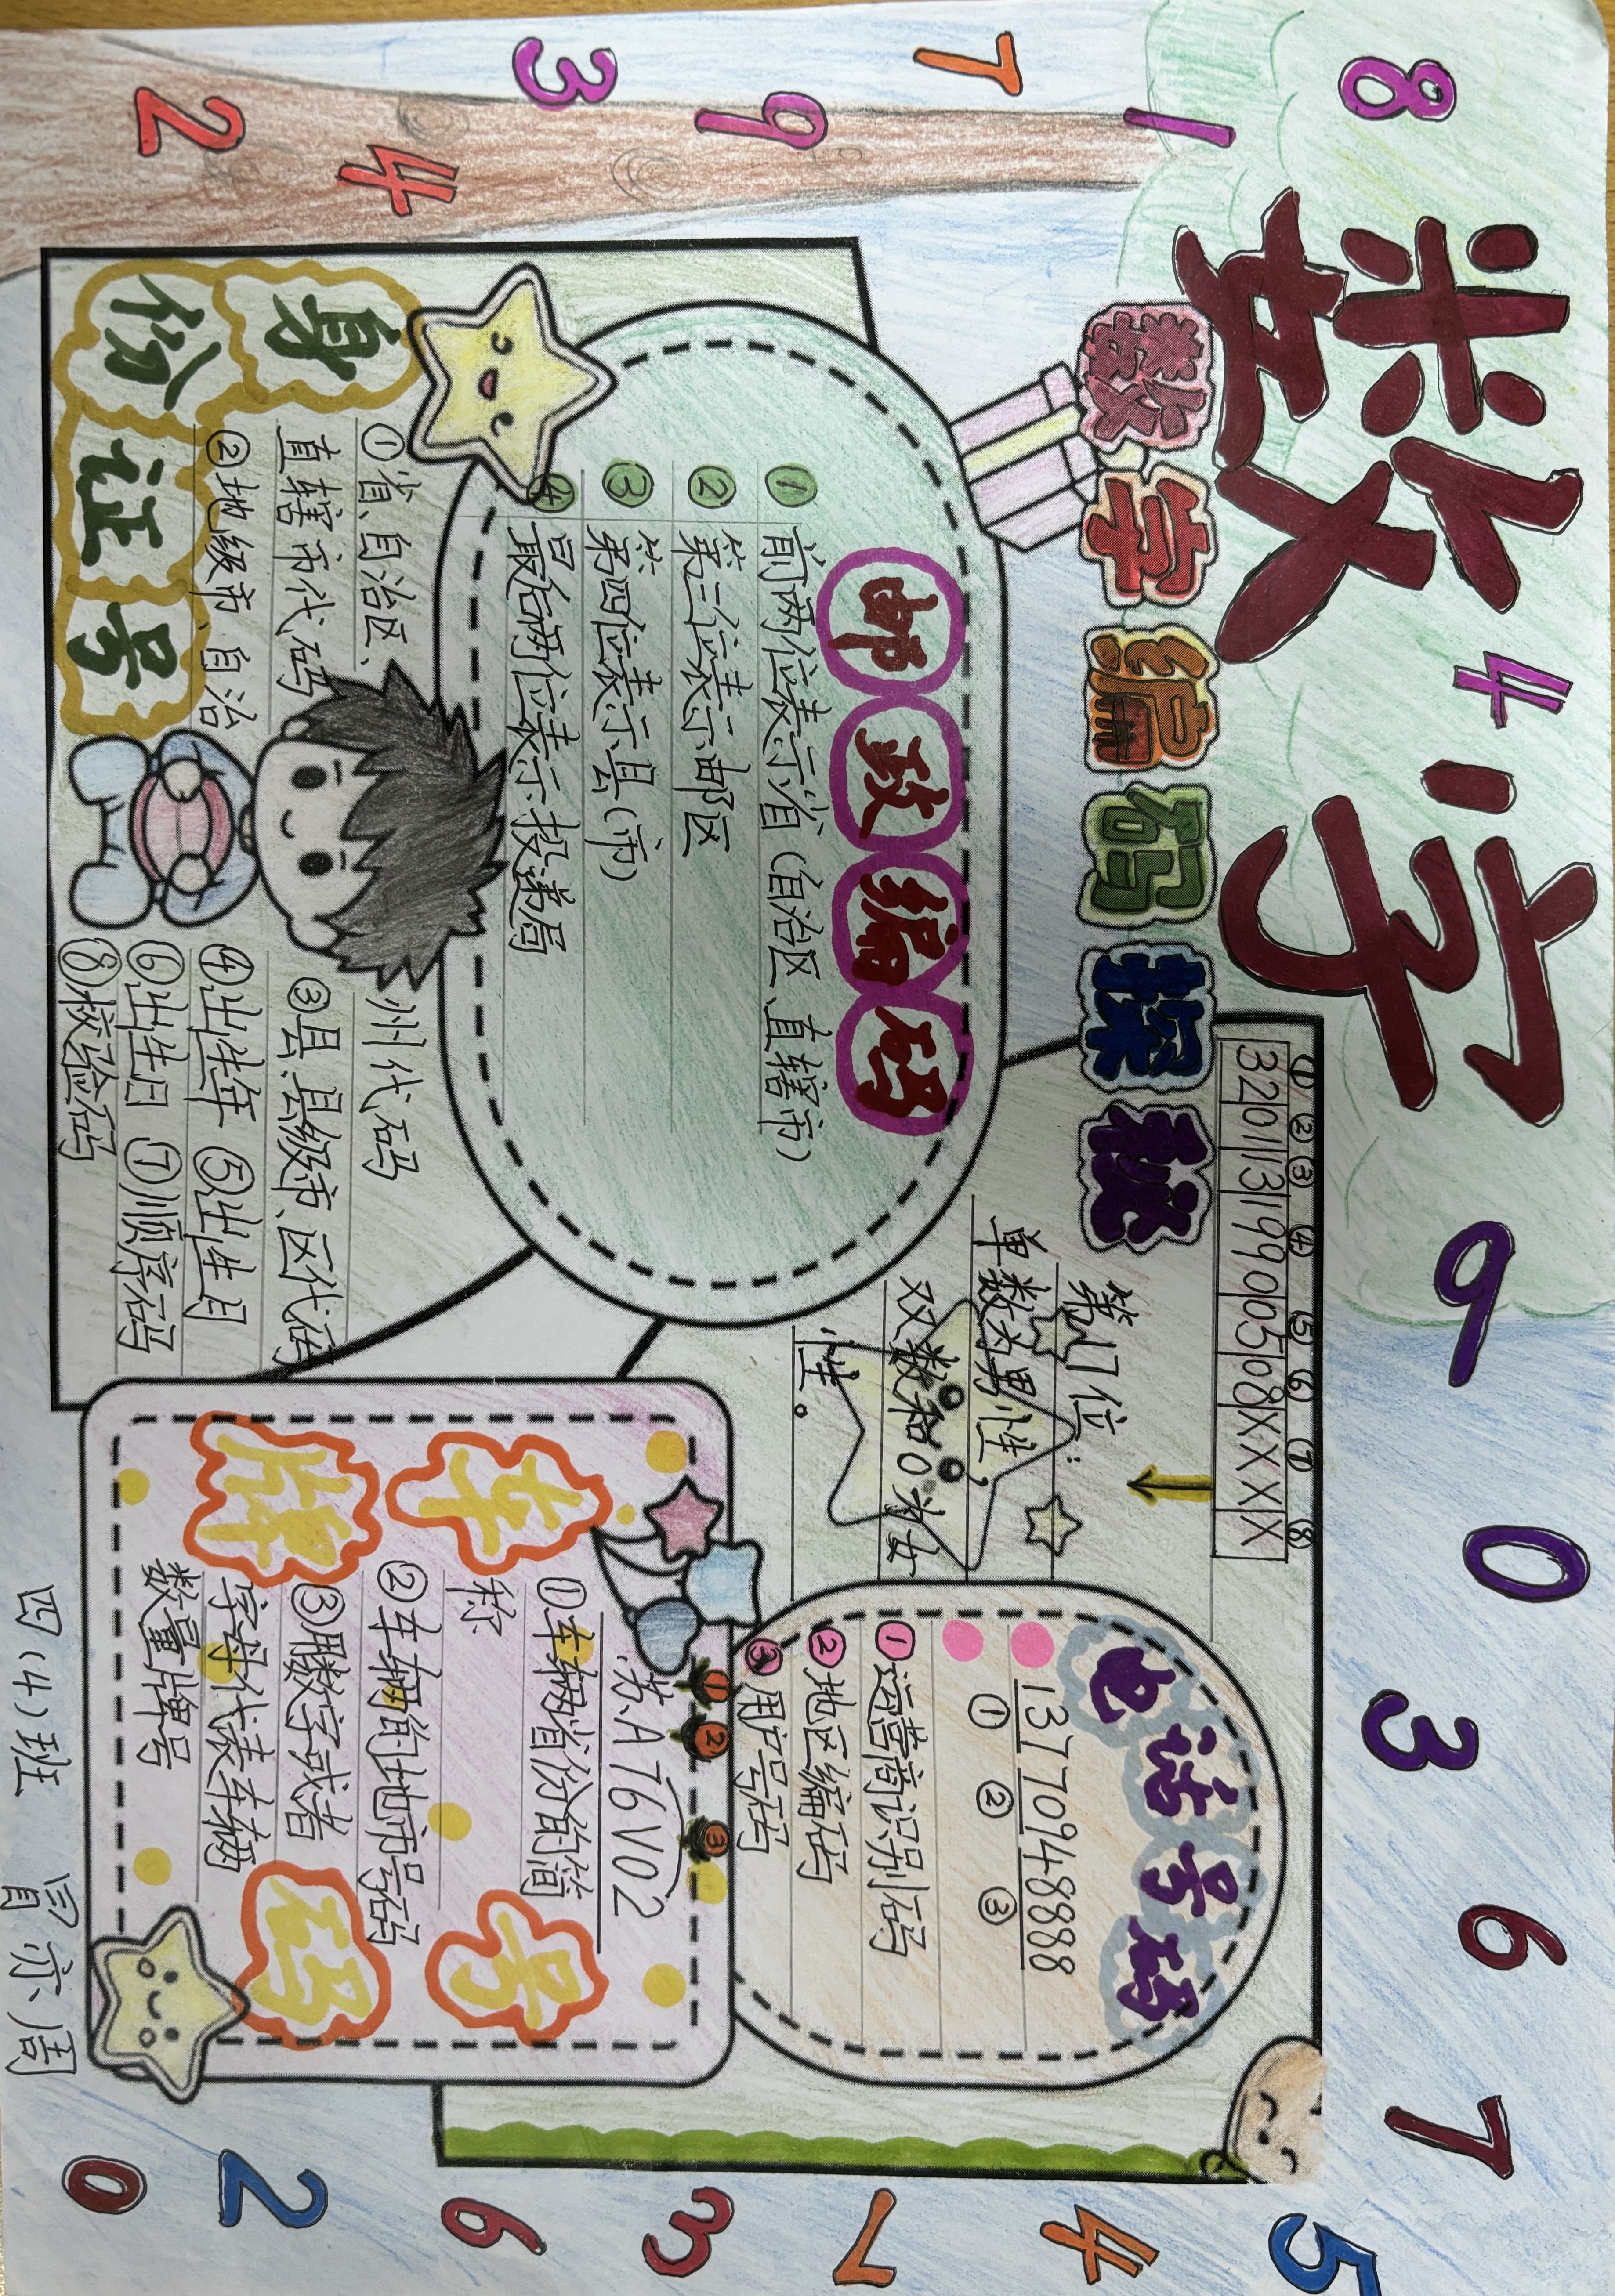 数字
数字编码探秘
8
1
7
9
3
4
2
4
9
0
3
6
7
5
4
7
3
6
2
0
邮政编码
① 前两位表示省(自治区、直辖市)
② 第三位表示邮区
③ 第四位表示县(市)
④ 最后两位表示投递局
身份证号
①省、自治区、
直辖市代码
②地级市、自治
州代码
③县、县级市、区代码
④出生年 ⑤出生月
⑥出生日 ⑦顺序码
⑧校验码
① ② ③ ④ ⑤ ⑥ ⑦ ⑧
32 01 13 1990 05 08 XXX X
第17位:
单数为男性,
双数和0为女
性。
电话号码
137 7094 8888
① ② ③
①运营商识别码
②地区编码
③用户号码
车牌号码
① ② ③
苏A T6V02
①车辆省份的简
称
②车辆的地市号码
③数字或者
字母代表车辆
数量牌号
四(4)班